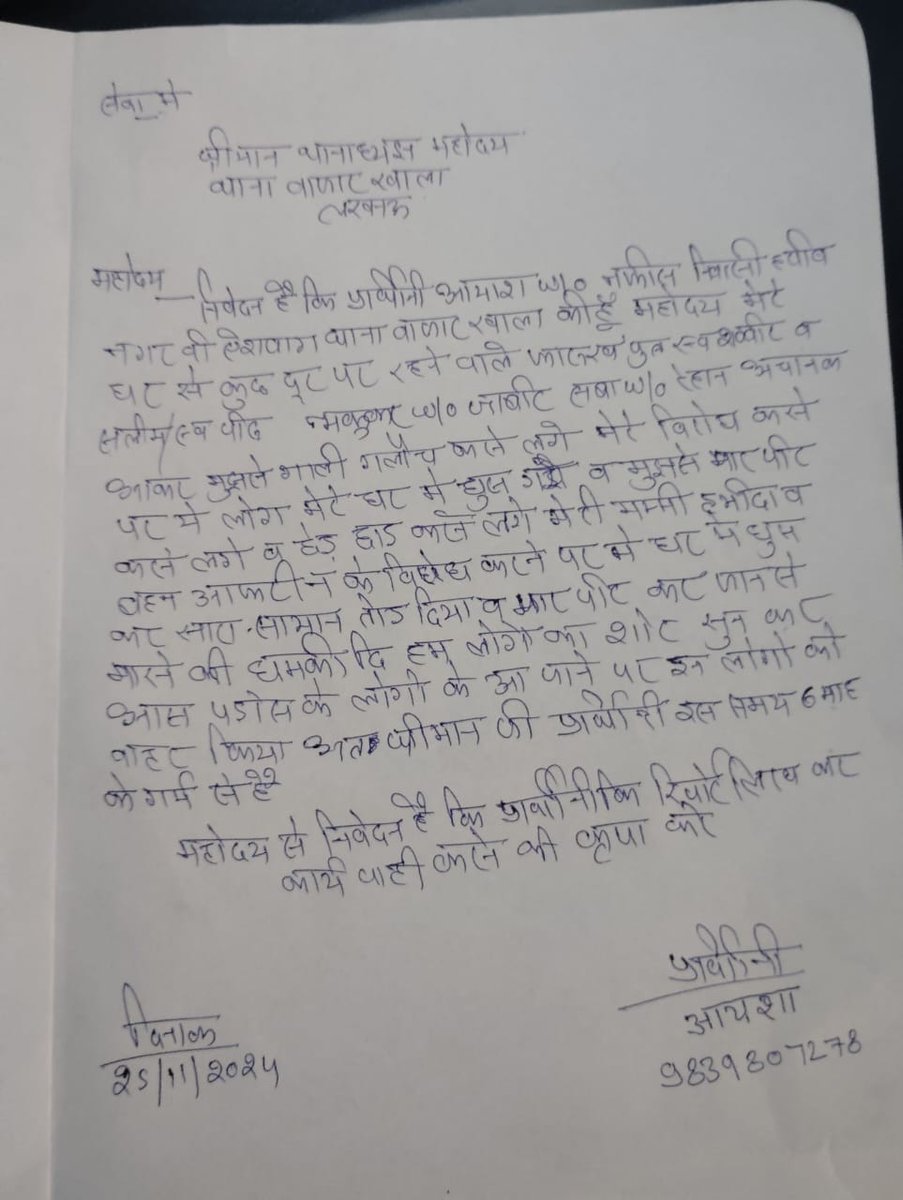 सेवा मे
श्रीमान थानाध्यक्ष महोदय
थाना बाजार खाला
लखनऊ
महोदय
निवेदन है कि प्रार्थीनी आयशा w/o नफीस निवासी हबीब
नगर थाना बाजार खाला की हूँ महोदय मेरे
घर से कुछ दूर पर रहने वाले पुत्र स्व व
सलीम w/o जाबीर सबा w/o रेहान अचानक
आकर मुझसे गाली गलौच करने लगे मेरे विरोध करने
पर ये लोग मेरे घर मे घुस गये व मुझसे मार पीट
करने लगे व छेड़ छाड़ करने लगे मेरी मम्मी हमीदा व
बहन आफरीन के विरोध करने पर मे घर मे घुस
कर सारा सामान तोड दिया व मार पीट कर जान से
मारने की धमकी दि हम लोगो का शोर सुन कर
आस पडोस के लोगो के आ जाने पर इन लोगो को
बाहर किया अतः श्रीमान जी प्रार्थीनी इस समय 6 माह
के गर्भ से है
महोदय से निवेदन है कि प्रार्थीनी कि रिपोर्ट लिख कर
कार्य वाही करने की कृपा करे
प्रार्थीनी
आयशा
9839807278
दिनाक
25/11/2024